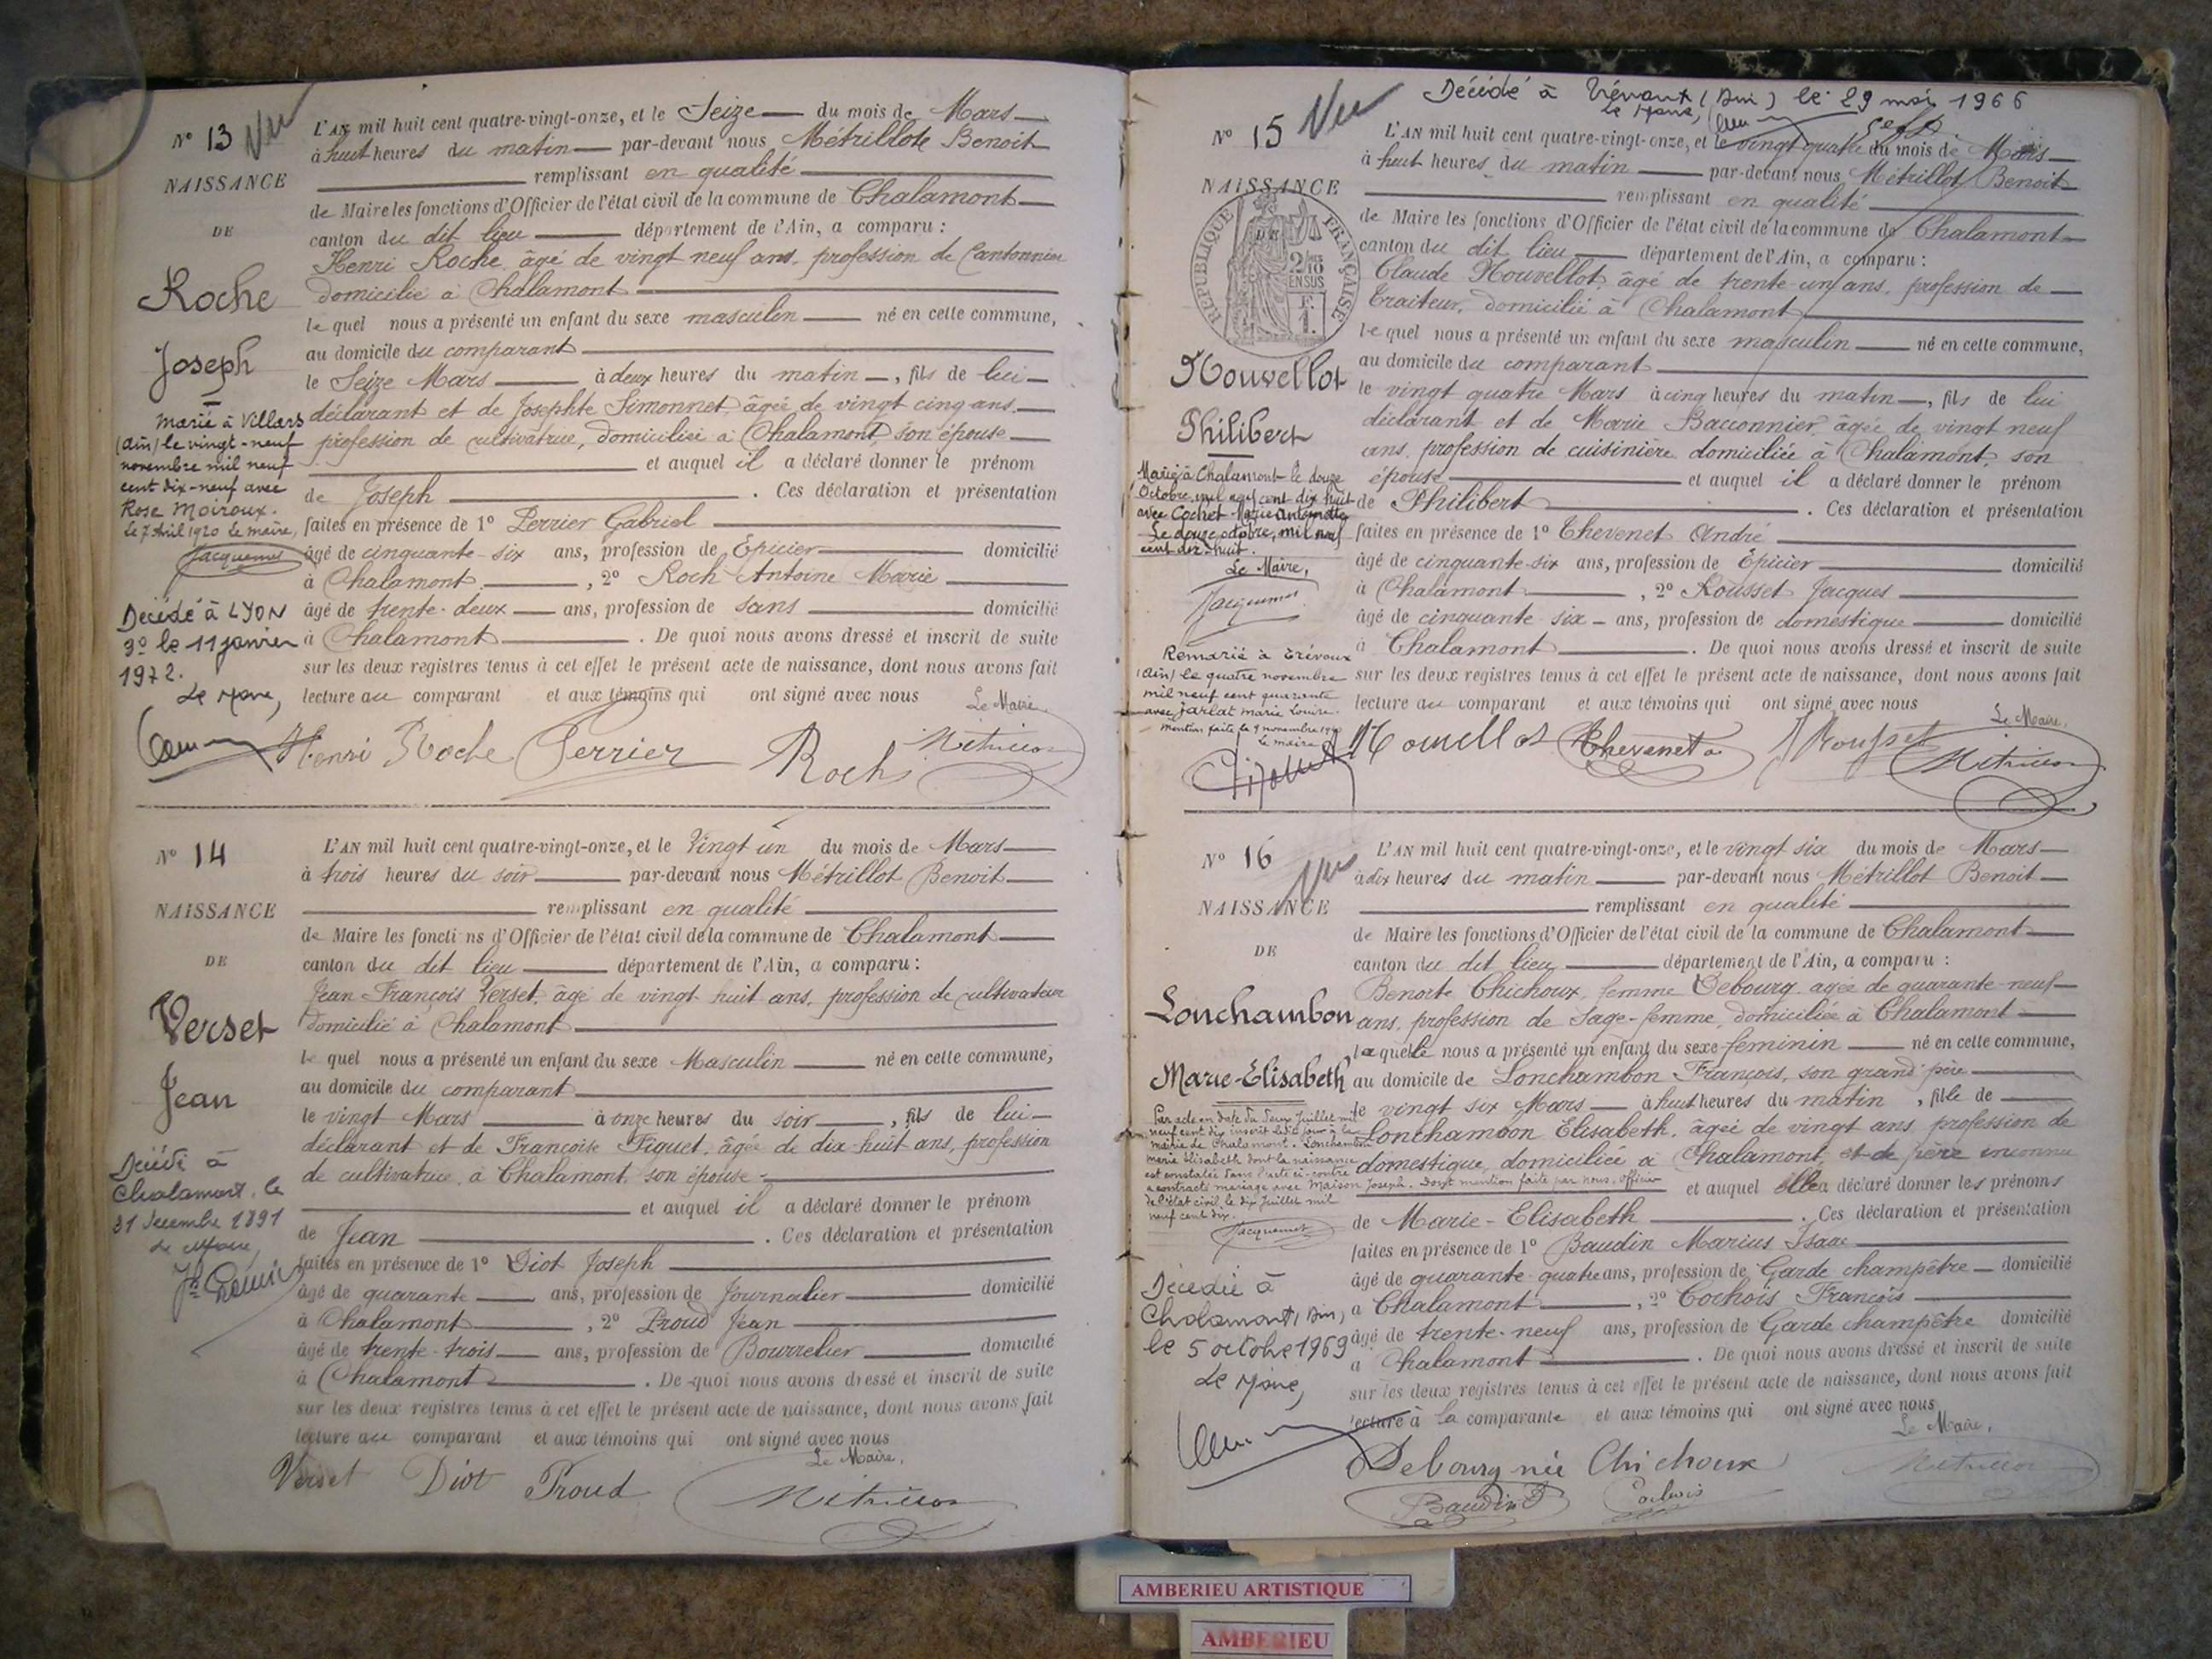 N° 13 Vu
NAISSANCE
DE
Roche
Joseph
Marié à Villars
(Ain) le vingt-neuf
novembre mil neuf
cent dix-neuf avec
Rose Moiroux.
Le 7 Avril 1920 Le Maire,
Jacquemet
Décédé à LYON
3º le 11 janvier
1972.
Le Maire,
L'AN mil huit cent quatre-vingt-onze, et le Seize du mois de Mars
à huit heures du matin par-devant nous Métrillot Benoit
remplissant en qualité
de Maire les fonctions d'Officier de l'état civil de la commune de Chalamont
canton du dit lieu département de l'Ain, a comparu :
Henri Roche âgé de vingt neuf ans, profession de Cantonnier
domicilié à Chalamont
le quel nous a présenté un enfant du sexe masculin né en cette commune,
au domicile du comparant
le Seize Mars à deux heures du matin, fils de lui
déclarant et de Josephte Simonnet, âgée de vingt cinq ans,
profession de cultivatrice, domiciliée à Chalamont, son épouse
et auquel il a déclaré donner le prénom
de Joseph . Ces déclaration et présentation
faites en présence de 1° Perrier Gabriel
âgé de cinquante-six ans, profession de Epicier domicilié
à Chalamont , 2° Roch Antoine Marie
âgé de trente-deux ans, profession de sans domicilié
à Chalamont . De quoi nous avons dressé et inscrit de suite
sur les deux registres tenus à cet effet le présent acte de naissance, dont nous avons fait
lecture au comparant et aux témoins qui ont signé avec nous
Le Maire.
Henri Roche Perrier Roch Métrillot
N° 14
NAISSANCE
DE
Verset
Jean
Décédé à
Chalamont, le
31 Decembre 1891
Le Maire,
L'AN mil huit cent quatre-vingt-onze, et le Vingt un du mois de Mars
à trois heures du soir par-devant nous Métrillot Benoit
remplissant en qualité
de Maire les fonctions d'Officier de l'état civil de la commune de Chalamont
canton du dit lieu département de l'Ain, a comparu :
Jean-François Verset, âgé de vingt huit ans, profession de cultivateur
domicilié à Chalamont
le quel nous a présenté un enfant du sexe Masculin né en cette commune,
au domicile du comparant
le vingt Mars à onze heures du soir, fils de lui
déclarant et de Françoise Figuet, âgée de dix-huit ans, profession
de cultivatrice, à Chalamont, son épouse
et auquel il a déclaré donner le prénom
de Jean . Ces déclaration et présentation
faites en présence de 1° Diot Joseph
âgé de quarante ans, profession de Journalier domicilié
à Chalamont , 2° Proud Jean
âgé de trente-trois ans, profession de Bourrelier domicilié
à Chalamont . De quoi nous avons dressé et inscrit de suite
sur les deux registres tenus à cet effet le présent acte de naissance, dont nous avons fait
lecture au comparant et aux témoins qui ont signé avec nous
Le Maire.
Verset Diot Proud Métrillot
Décédé à Trévoux (Ain) le 29 mai 1966
Le Maire,
N° 15 Vu
NAISSANCE
DE
REPUBLIQUE FRANÇAISE
2/10 EN SUS
Nouvellot
Philibert
Marié à Chalamont le douze
Octobre mil neuf cent dix huit
avec Cochet Marie Antoinette
Le douze octobre, mil neuf
cent dix-huit.
Le Maire,
Jacquemet
Remarié à Trévoux
(Ain) le quatre novembre
mil neuf cent quarante
avec Jarlat Marie Louise.
Mention faite le 9 novembre
Le maire
L'AN mil huit cent quatre-vingt-onze, et le vingt quatre du mois de Mars
à huit heures du matin par-devant nous Métrillot Benoit
remplissant en qualité
de Maire les fonctions d'Officier de l'état civil de la commune de Chalamont
canton du dit lieu département de l'Ain, a comparu :
Claude Nouvellot, âgé de trente-un ans, profession de
Traiteur, domicilié à Chalamont
le quel nous a présenté un enfant du sexe masculin né en cette commune,
au domicile du comparant
le vingt quatre Mars à cinq heures du matin, fils de lui
déclarant et de Marie Bacconnier, âgée de vingt neuf
ans, profession de cuisinière domiciliée à Chalamont, son
épouse et auquel il a déclaré donner le prénom
de Philibert . Ces déclaration et présentation
faites en présence de 1° Thevenet André
âgé de cinquante-six ans, profession de Epicier domicilié
à Chalamont , 2° Rousset Jacques
âgé de cinquante-six ans, profession de domestique domicilié
à Chalamont . De quoi nous avons dressé et inscrit de suite
sur les deux registres tenus à cet effet le présent acte de naissance, dont nous avons fait
lecture au comparant et aux témoins qui ont signé avec nous
Le Maire.
Nouvellot Thevenet a Rousset Métrillot
N° 16 Vu
NAISSANCE
DE
Lonchambon
Marie-Elisabeth
Par acte en date du deux Juillet mil
neuf cent dix inscrit le dit jour à la
mairie de Chalamont. Lonchambon
Marie Elisabeth dont la naissance
est constatée dans l'acte ci-contre
a contracté mariage avec Maison Joseph. Dont mention faite par nous, officier
de l'état civil le dix Juillet mil
neuf cent dix.
Jacquemet
Décédée à
Chalamont, Ain,
le 5 octobre 1969
Le Maire,
L'AN mil huit cent quatre-vingt-onze, et le vingt six du mois de Mars
à dix heures du matin par-devant nous Métrillot Benoit
remplissant en qualité
de Maire les fonctions d'Officier de l'état civil de la commune de Chalamont
canton du dit lieu département de l'Ain, a comparu :
Benoite Chichoux, femme Debourg âgée de quarante-neuf
ans, profession de Sage-femme, domiciliée à Chalamont
laquelle nous a présenté un enfant du sexe feminin né en cette commune,
au domicile de Lonchambon François, son grand père
le vingt six Mars à huit heures du matin, fille de
Lonchambon Elisabeth, âgée de vingt ans, profession de
domestique, domiciliée à Chalamont, et de père inconnu
et auquel elle a déclaré donner les prénoms
de Marie-Elisabeth . Ces déclaration et présentation
faites en présence de 1° Baudin Marius Isaac
âgé de quarante-quatre ans, profession de Garde champêtre domicilié
à Chalamont , 2° Cochois François
âgé de trente-neuf ans, profession de Garde champêtre domicilié
à Chalamont . De quoi nous avons dressé et inscrit de suite
sur les deux registres tenus à cet effet le présent acte de naissance, dont nous avons fait
lecture à la comparante et aux témoins qui ont signé avec nous
Le Maire.
Debourg née Chichoux Métrillot
Baudin Cochois
AMBERIEU ARTISTIQUE
AMBERIEU